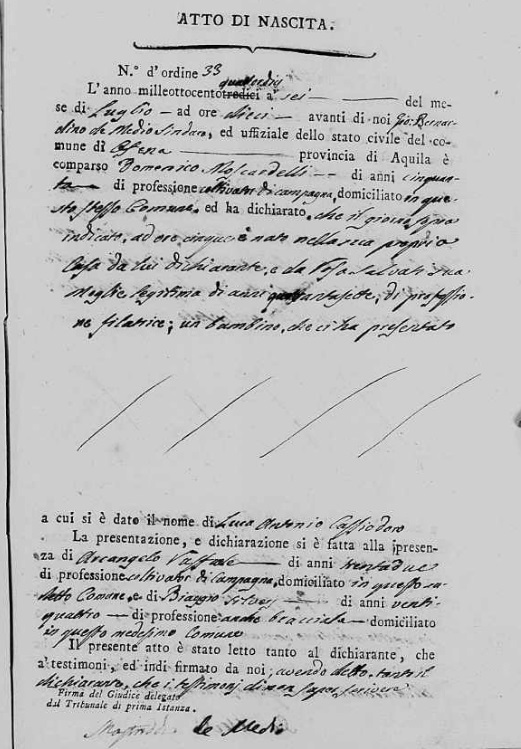 ATTO DI NASCITA.
N.º d'ordine 33
L'anno milleottocentotredici quattordici a' sei del me-
se di Luglio - ad ore dieci - avanti di noi Gio: Bernar-
dino de Medio Sindaco, ed uffiziale dello stato civile del co-
mune di Ofena provincia di Aquila è
comparso Domenico Moscardelli di anni cinquan-
ta di professione coltivator di campagna, domiciliato in que-
sto stesso Comune, ed ha dichiarato, che il giorno sopra
indicato, ad ore cinque è nato nella sua propria
Casa da lui dichiarante, e da Rosa Salvati sua
Moglie legitima di anni quarantasette, di professio-
ne filatrice; un bambino, che ci ha presentato
a cui si è dato il nome di Luca Antonio Cassiodoro
La presentazione, e dichiarazione si è fatta alla presen-
za di Arcangelo di anni trentadue
di professione coltivator di campagna, domiciliato in questo su-
detto Comune, e di Biaggio Silveri di anni venti-
quattro - di professione anche domiciliato
in questo medesimo Comune
Il presente atto è stato letto tanto al dichiarante, che
a' testimonj, ed indi firmato da noi, avendo detto tanto il
dichiarante, che i testimonj di non saper scrivere
Firma del Giudice delegato
dal Tribunale di prima Istanza.
de Medio